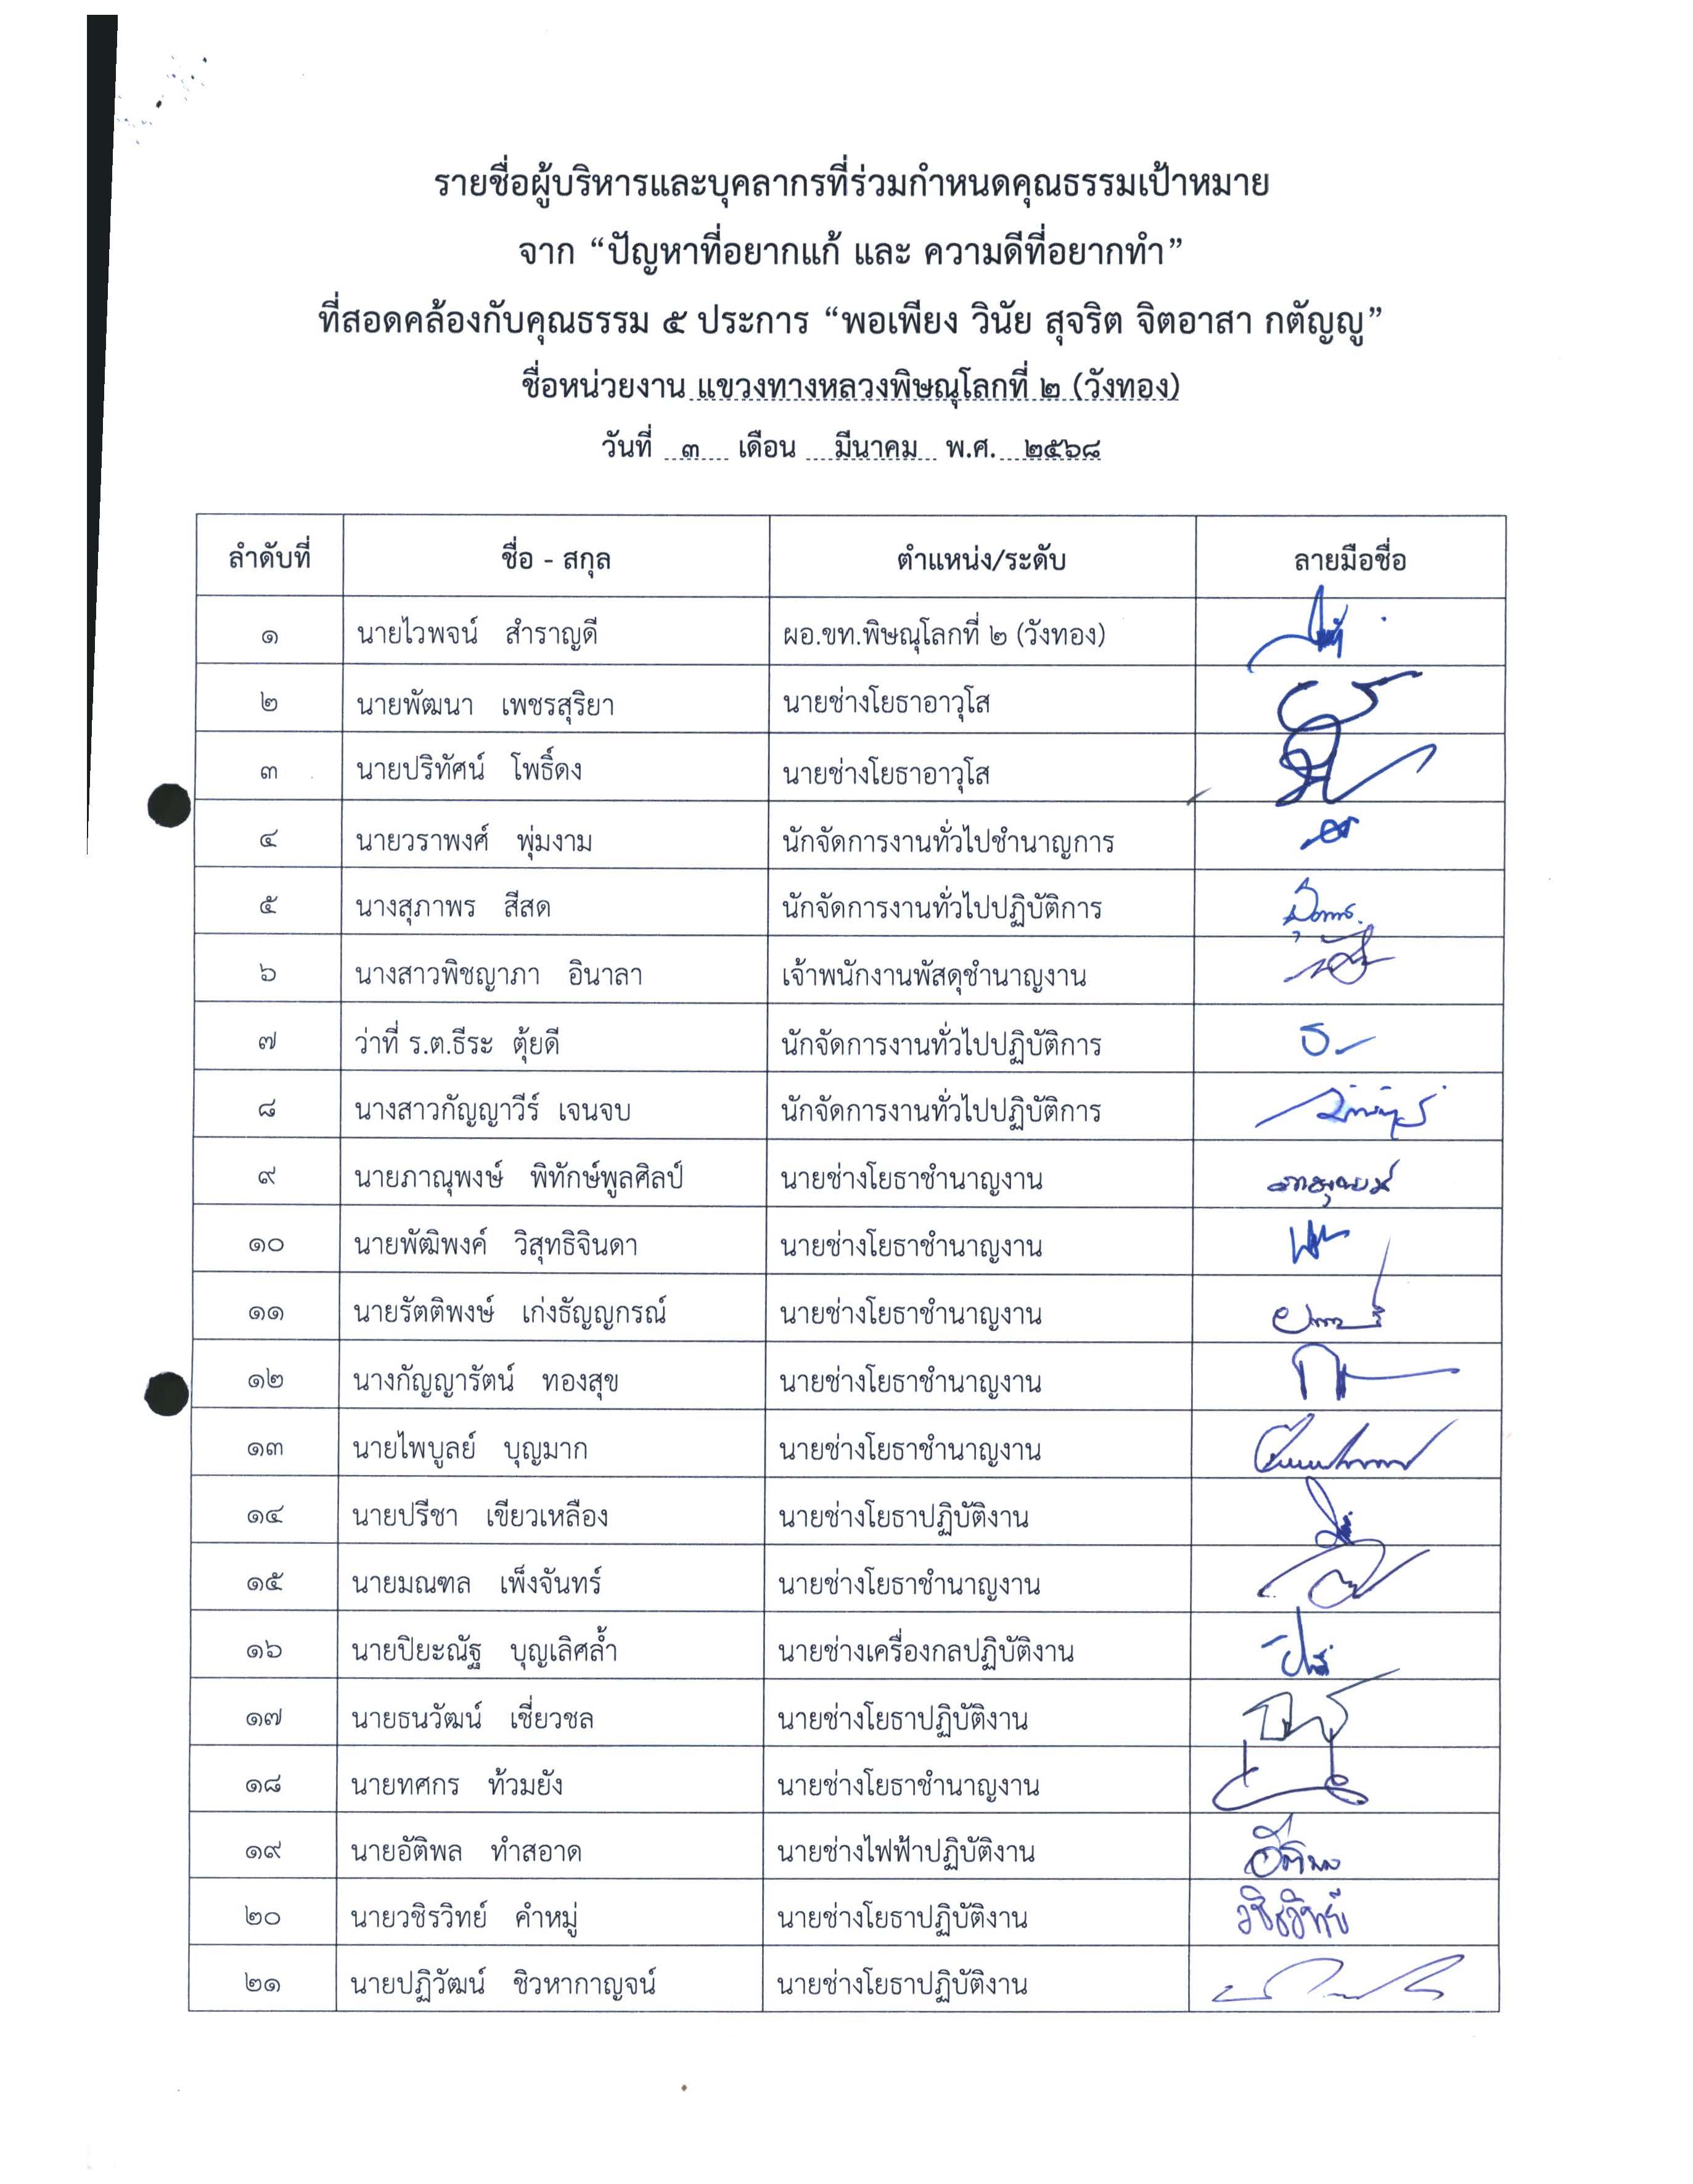 รายชื่อผู้บริหารและบุคลากรที่ร่วมกำหนดคุณธรรมเป้าหมาย
จาก “ปัญหาที่อยากแก้ และ ความดีที่อยากทำ”
ที่สอดคล้องกับคุณธรรม ๕ ประการ “พอเพียง วินัย สุจริต จิตอาสา กตัญญู”
ชื่อหน่วยงาน แขวงทางหลวงพิษณุโลกที่ ๒ (วังทอง)
วันที่ ๓ เดือน มีนาคม พ.ศ. ๒๕๖๘
ลำดับที่ ชื่อ - สกุล ตำแหน่ง/ระดับ ลายมือชื่อ
๑ นายไวพจน์ สำราญดี ผอ.ขท.พิษณุโลกที่ ๒ (วังทอง)
๒ นายพัฒนา เพชรสุริยา นายช่างโยธาอาวุโส
๓ นายปริทัศน์ โพธิ์ดง นายช่างโยธาอาวุโส
๔ นายวราพงศ์ พุ่มงาม นักจัดการงานทั่วไปชำนาญการ
๕ นางสุภาพร สีสด นักจัดการงานทั่วไปปฏิบัติการ
๖ นางสาวพิชญาภา อินาลา เจ้าพนักงานพัสดุชำนาญงาน
๗ ว่าที่ ร.ต.ธีระ ตุ้ยดี นักจัดการงานทั่วไปปฏิบัติการ
๘ นางสาวกัญญาวีร์ เจนจบ นักจัดการงานทั่วไปปฏิบัติการ
๙ นายภาณุพงษ์ พิทักษ์พูลศิลป์ นายช่างโยธาชำนาญงาน
๑๐ นายพัฒิพงค์ วิสุทธิจินดา นายช่างโยธาชำนาญงาน
๑๑ นายรัตติพงษ์ เก่งธัญญกรณ์ นายช่างโยธาชำนาญงาน
๑๒ นางกัญญารัตน์ ทองสุข นายช่างโยธาชำนาญงาน
๑๓ นายไพบูลย์ บุญมาก นายช่างโยธาชำนาญงาน
๑๔ นายปรีชา เขียวเหลือง นายช่างโยธาปฏิบัติงาน
๑๕ นายมณฑล เพ็งจันทร์ นายช่างโยธาชำนาญงาน
๑๖ นายปิยะณัฐ บุญเลิศล้ำ นายช่างเครื่องกลปฏิบัติงาน
๑๗ นายธนวัฒน์ เชี่ยวชล นายช่างโยธาปฏิบัติงาน
๑๘ นายทศกร ท้วมยัง นายช่างโยธาชำนาญงาน
๑๙ นายอัติพล ทำสอาด นายช่างไฟฟ้าปฏิบัติงาน
๒๐ นายวชิรวิทย์ คำหมู่ นายช่างโยธาปฏิบัติงาน วชิรวิทย์
๒๑ นายปฏิวัฒน์ ชิวหากาญจน์ นายช่างโยธาปฏิบัติงาน